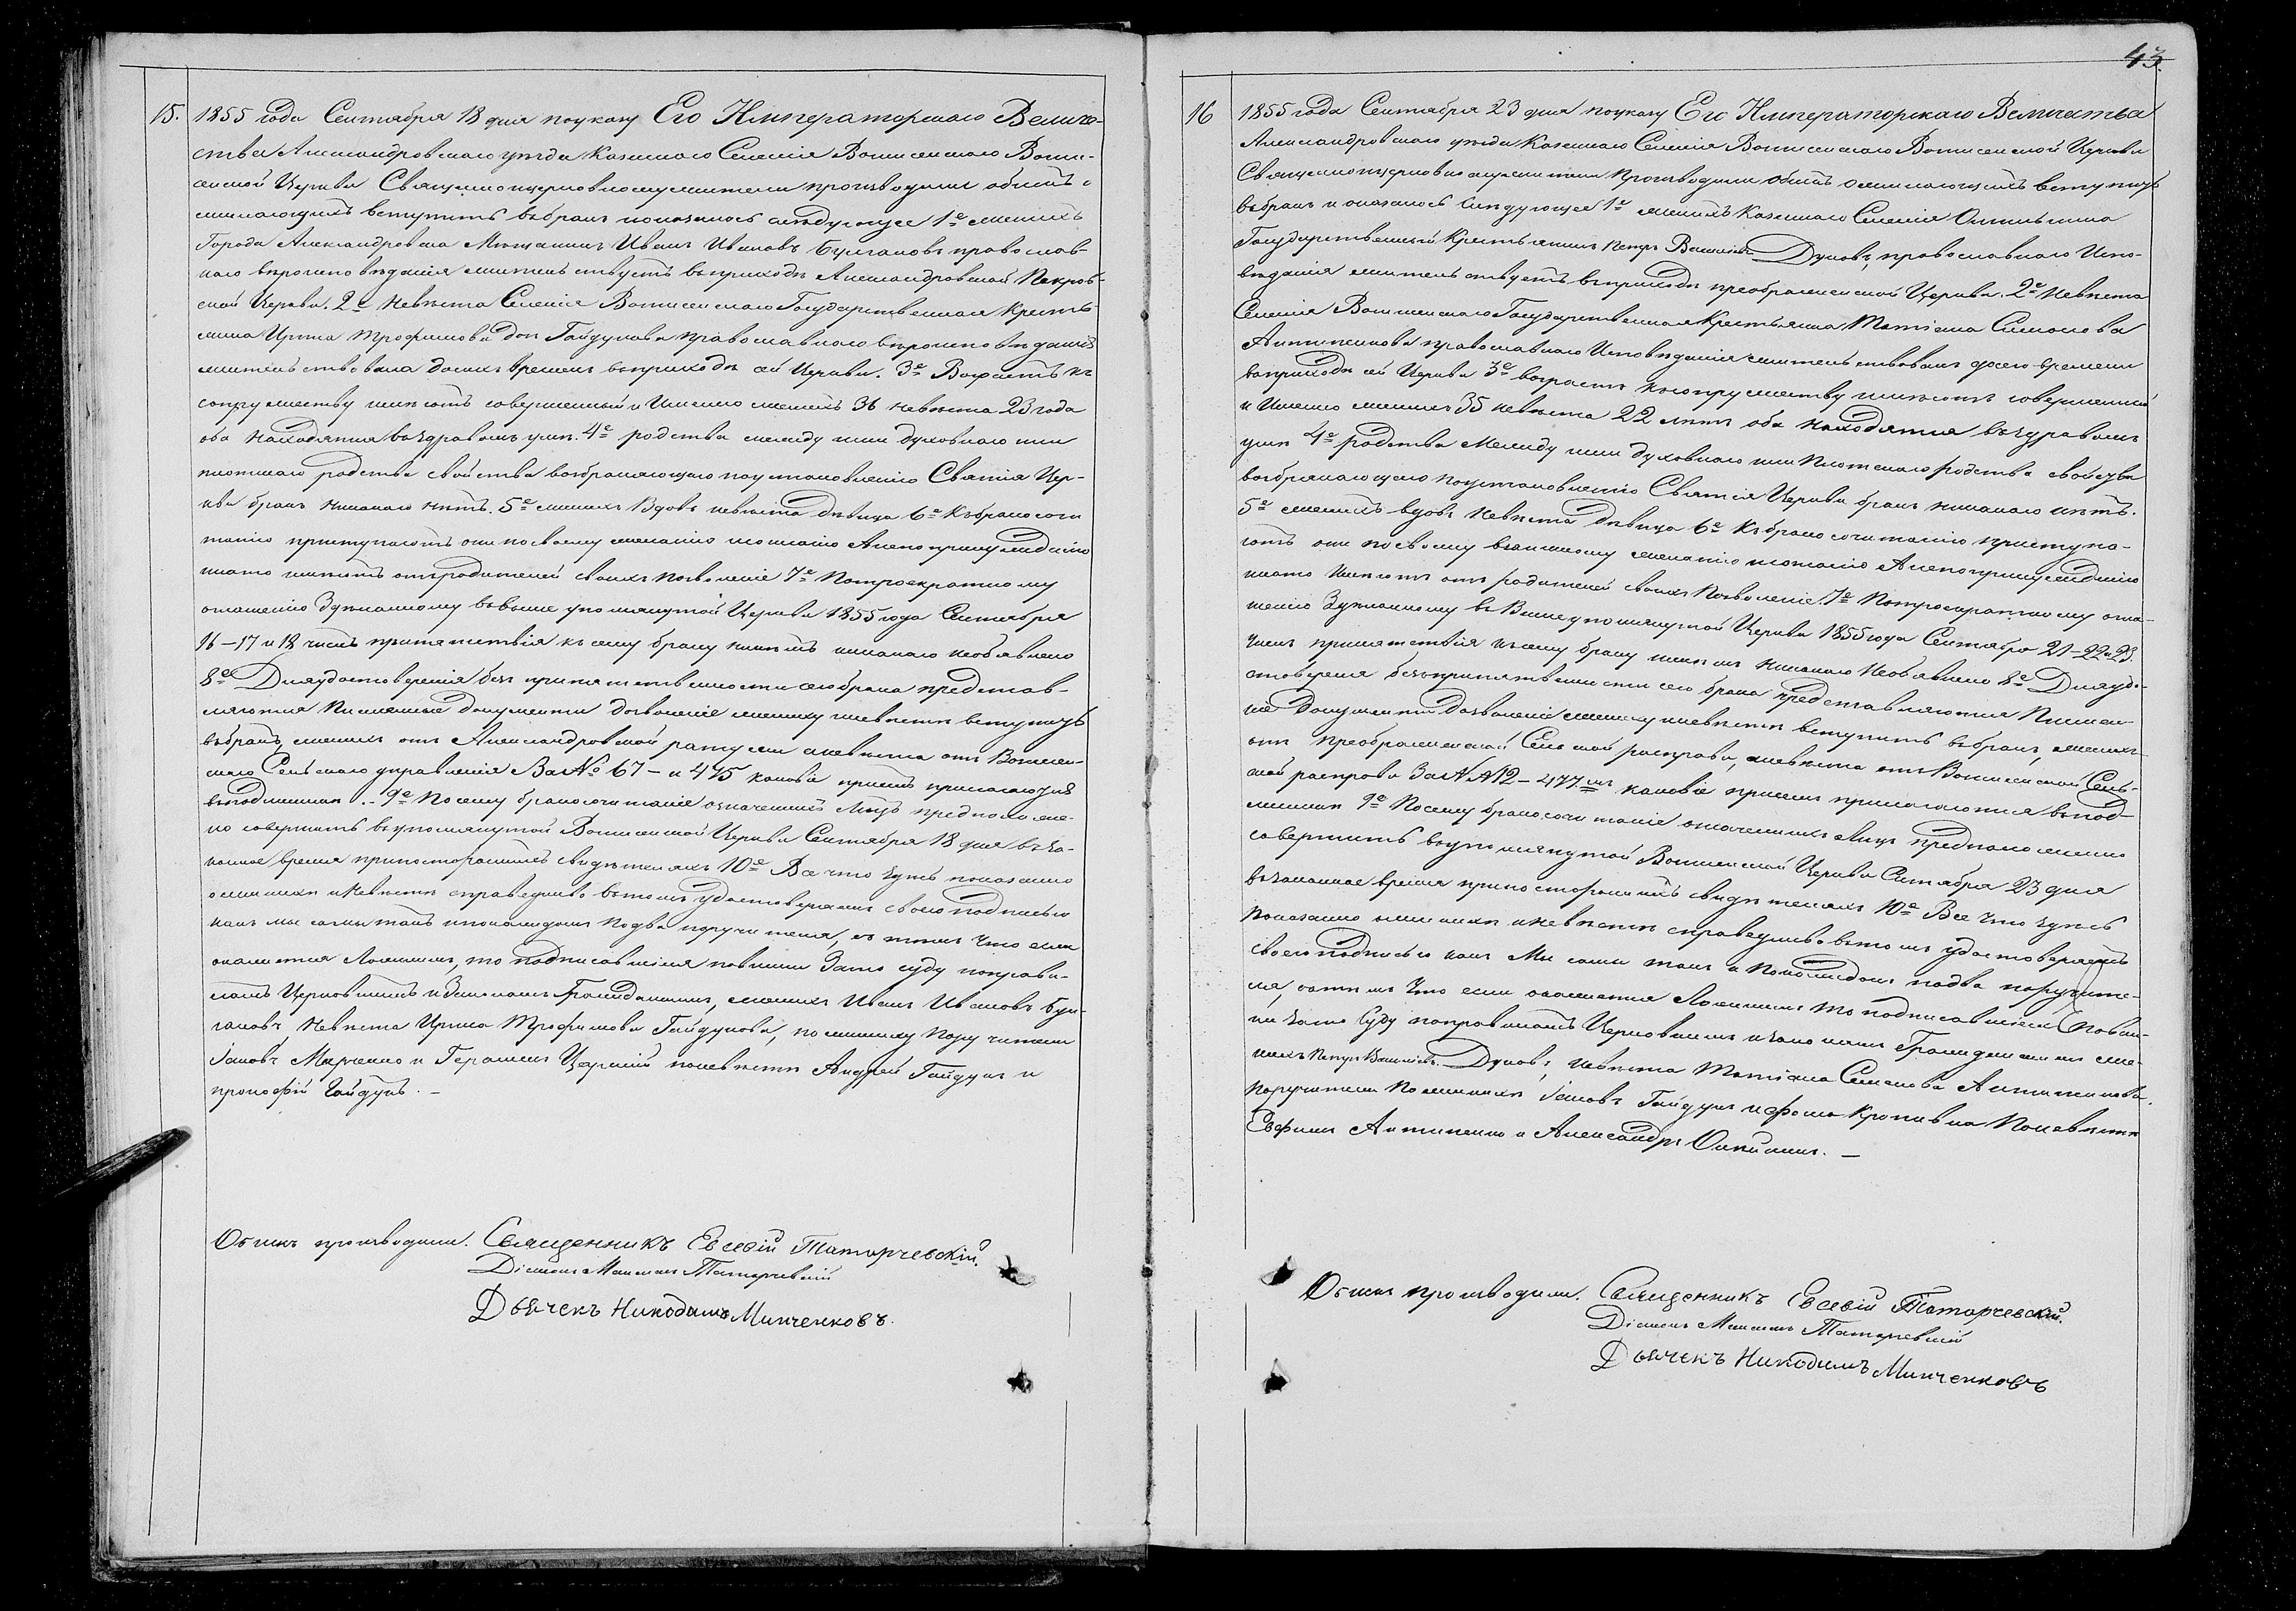 43.
15. 1855 года Сентября 18 дня по указу Его Императорскаго Величе-
ства Александровскаго уезда Казеннаго Селенія Вознесенскаго Вознe-
сенской Церкви Священноцерковнослужители производили обыскъ о
желающихъ вступить въ бракъ и оказалось следующее 1е женихъ
Города Александровска Мещанинъ Иванъ Ивановъ православ-
наго вероисповеданія жительствуетъ въ приходе Александровской Покров-
ской Церкви. 2е Невеста Селенія Вознесенскаго Государственная Кресть-
янка Ирина Трофимова дочь Гайдукова православнаго вероисповеданія
жительствовала до сихъ временъ въ приходе сей Церкви. 3е Возрастъ къ
супружеству имеютъ совершенный и Именно женихъ 36 невеста 23 года
оба находятся въ здравомъ уме. 4е родства между ими духовнаго или
плотскаго родства свойства возбраняющаго по установленію Святыя Цер-
кви бракъ никакого нетъ. 5е женихъ Вдовъ невеста Девица 6е Къ бракосоче
танію приступаютъ они по своему желанію и согласію А не по принужденію
и на то имеютъ отъ родителей своихъ позволеніе 7е По троекратному
оглашенію Зделанному въ выше упомянутой Церкви 1855 года Сентября
16 – 17 и 18 чиселъ препятствія къ сему браку никемъ никакого необявлено
8е Для удостоверенія безпрепятственности сего брака представ-
ляются Письменные Документы дозволеніе жениху и невесте вступить
въ бракъ, женихъ отъ Александровской ратуши а невеста отъ Вознесен-
скаго Сельскаго управленія За № 67 – и 475 каковые при семъ прилагаются
въ подлиннике. – 9е По сему бракосочитаніе означенныхъ Лицъ предположе-
но совершить въ упомянутой Вознесенской Церкви Сентября 18 дня въ за-
конное время при постороннихъ свидетеляхъ 10е Все что здесь показано
о женихе и невесте справедливо въ томъ удостоверяемъ своею подписью
какъ мы самы такъ и по каждомъ по два поручителя, съ темъ что если
окажется Ложнымъ, то подписавшіеся повинны за то суду по прави-
ламъ Церковнымъ и Законамъ Гражданскимъ, женихъ Иванъ Ивановъ
Невеста Ирина Трофимова Гайдукова, по жениху Поручители
Іаковъ Марченко и Герасимъ по невесте Андрей Гайдукъ и
прокофій Гайдукъ. –
Обыскъ производили. Священникъ Евсевій Татарчевскій.
Діаконъ Максимъ Татарчевскій
Дьячекъ Никодимъ Минченковъ.
16 1855 года Сентября 23 дня по указу Его Императорскаго Величества
Александровскаго уезда Казеннаго Селенія Вознесенскаго Вознесенской Церкви
Священноцерковнослужители Производили Обыскъ о желающихъ вступить
въ бракъ и оказалось Следующее 1е женихъ Казеннаго Селенія
Государственный Крестьянинъ Петръ Васильевъ православнаго Испо-
веданія жительствуетъ въ приходе преображенской Церкви. 2е Невеста
Селенія Вознесенскаго Государственная Крестьянка Татіана Симонова
Антипенкова православнаго Исповеданія жительствовала до сего времени
въ приходе сей Церкви 3е возрастъ къ супружеству имеютъ совершенный
и Именно женихъ 35 невеста 22 летъ оба находятся въ здравомъ
уме 4е родства Между ими духовнаго или Плотскаго родства свойства
возбраняющаго по установленію Святыя Церкви бракъ никакого нетъ.
5е женихъ вдовъ Невеста Девица 6е Къ бракосочитанію приступа-
ютъ они по своему взаимному желанію и согласію А не по принужденію
и на то имеютъ отъ родителей своихъ Позволеніе. 7е По троекратному огла-
шенію Зделанному въ Выше упомянутой Церкви 1855 года Сентября 21 – 22 и 23.
чиселъ препятствія къ сему браку никемъ никакого необявлено 8е Для удо-
стоверенія безпрепятственности сего брака представляются Письмен-
ные Документы Дозволеніе жениху и невесте вступить въ бракъ, женихъ
отъ преображенской Сельской расправы, а невеста отъ Вознесенской Сель-
ской расправы За №№ 12 – 477. каковые при семъ прилагаются въ под-
линнике 9е По сему бракосочитаніе означенныхъ Лицъ предположенно
совершить въ упомянутой Вознесенской Церкви Сентября 23 дня
въ законное время при постороннихъ свидетеляхъ 10е Все что здесь
показанно о женихе и невесте справедливо въ томъ удостоверяемъ
своею подписью какъ Мы самы такъ и По каждомъ по два поручите-
ля, съ темъ что если окажется Ложнымъ то подписавшіеся Повин-
ны за то Суду по правиламъ Церковнымъ и законамъ Гражданскимъ же-
нихъ Петръ Васильевъ невеста Татіана Симонова Антипенкова.
Поручители По жениху Іаковъ Гайдукъ и фома Кропивка По невесте
Евфимъ Антипенко и Александръ
Обыскъ производили. Священникъ Евсевій Татарчевскій.
Діаконъ Максимъ Татарчевскій
Дьячекъ Никодимъ Минченковъ